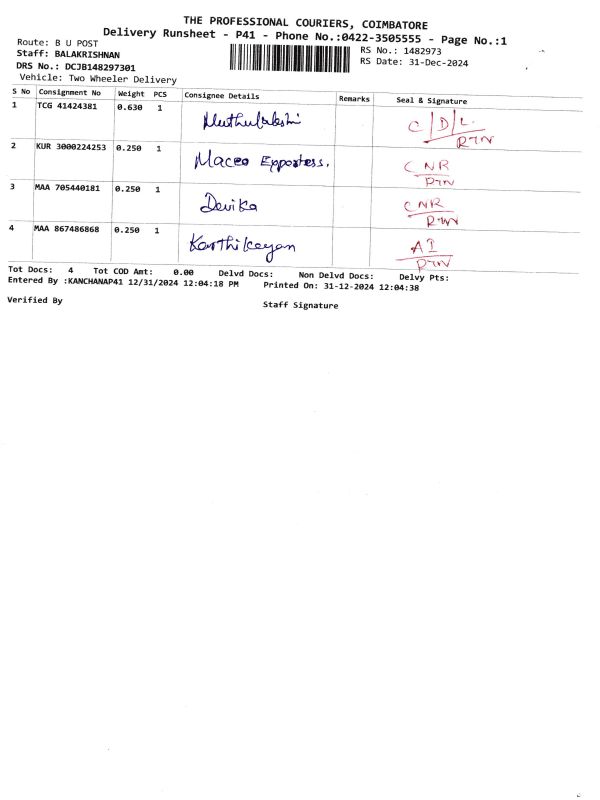 THE PROFESSIONAL COURIERS, COIMBATORE
Delivery Runsheet - P41 - Phone No.:0422-3505555 - Page No.:1
Route: B U POST
RS No.: 1482973
Staff: BALAKRISHNAN
RS Date: 31-Dec-2024
DRS No.: DCJB148297301
Vehicle: Two Wheeler Delivery
S No Consignment No Weight PCS Consignee Details Remarks Seal & Signature
1 TCG 41424381 0.630 1 C/D/L
RTN
2 KUR 3000224253 0.250 1 Maceo Exportess. CNR
RTN
3 MAA 705440181 0.250 1 Devika CNR
RTN
4 MAA 867486868 0.250 1 Karthikeyan AI
RTN
Tot Docs: 4 Tot COD Amt: 0.00 Delvd Docs: Non Delvd Docs: Delvy Pts:
Entered By :KANCHANAP41 12/31/2024 12:04:18 PM Printed On: 31-12-2024 12:04:38
Verified By Staff Signature